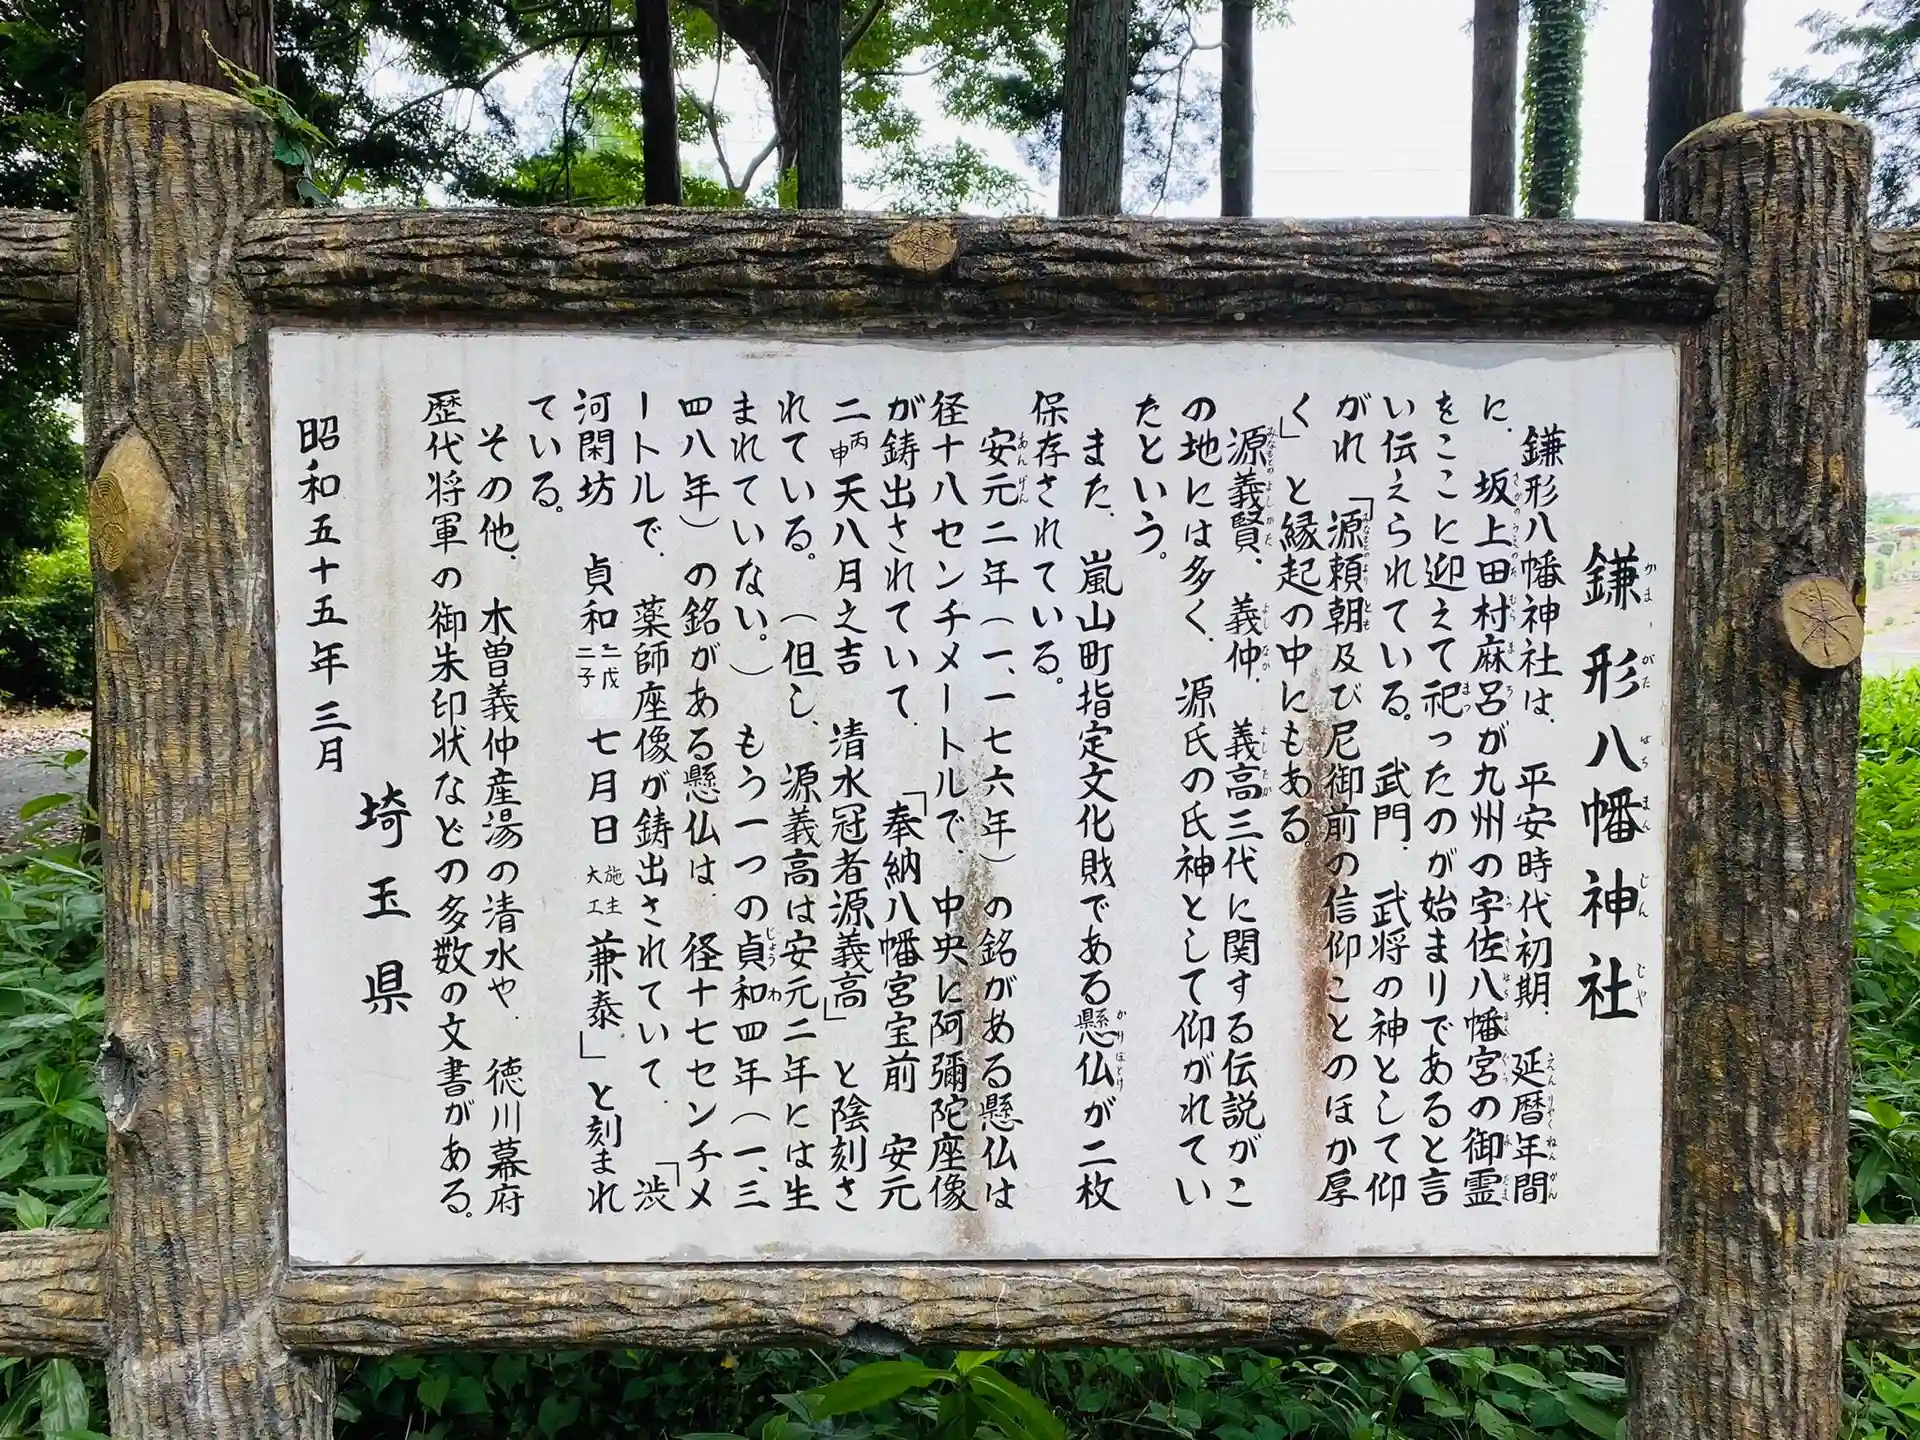 鎌形八幡神社
鎌形八幡神社は、平安時代初期、延暦年間
に、坂上田村麻呂が九州の宇佐八幡宮の御霊
をここに迎えて祀ったのが始まりであると言
い伝えられている。武門、武将の神として仰
がれ「源頼朝及び尼御前の信仰ことのほか厚
く」と縁起の中にもある。
源義賢、義仲、義高三代に関する伝説がこ
の地には多く、源氏の氏神として仰がれてい
たという。
また、嵐山町指定文化財である懸仏が二枚
保存されている。
安元二年（一、一七六年）の銘がある懸仏は
径十八センチメートルで、中央に阿彌陀座像
が鋳出されていて、「奉納八幡宮宝前 安元
二丙申天八月之吉 清水冠者源義高」と陰刻さ
れている。（但し、源義高は安元二年には生
まれていない。）もう一つの貞和四年（一、三
四八年）の銘がある懸仏は、径十七センチメ
ートルで、薬師座像が鋳出されていて、「渋
河閑坊 貞和二二戊子 七月日施主大工兼泰」と刻まれ
ている。
その他、木曽義仲産湯の清水や、徳川幕府
歴代将軍の御朱印状などの多数の文書がある。
昭和五十五年三月
埼玉県